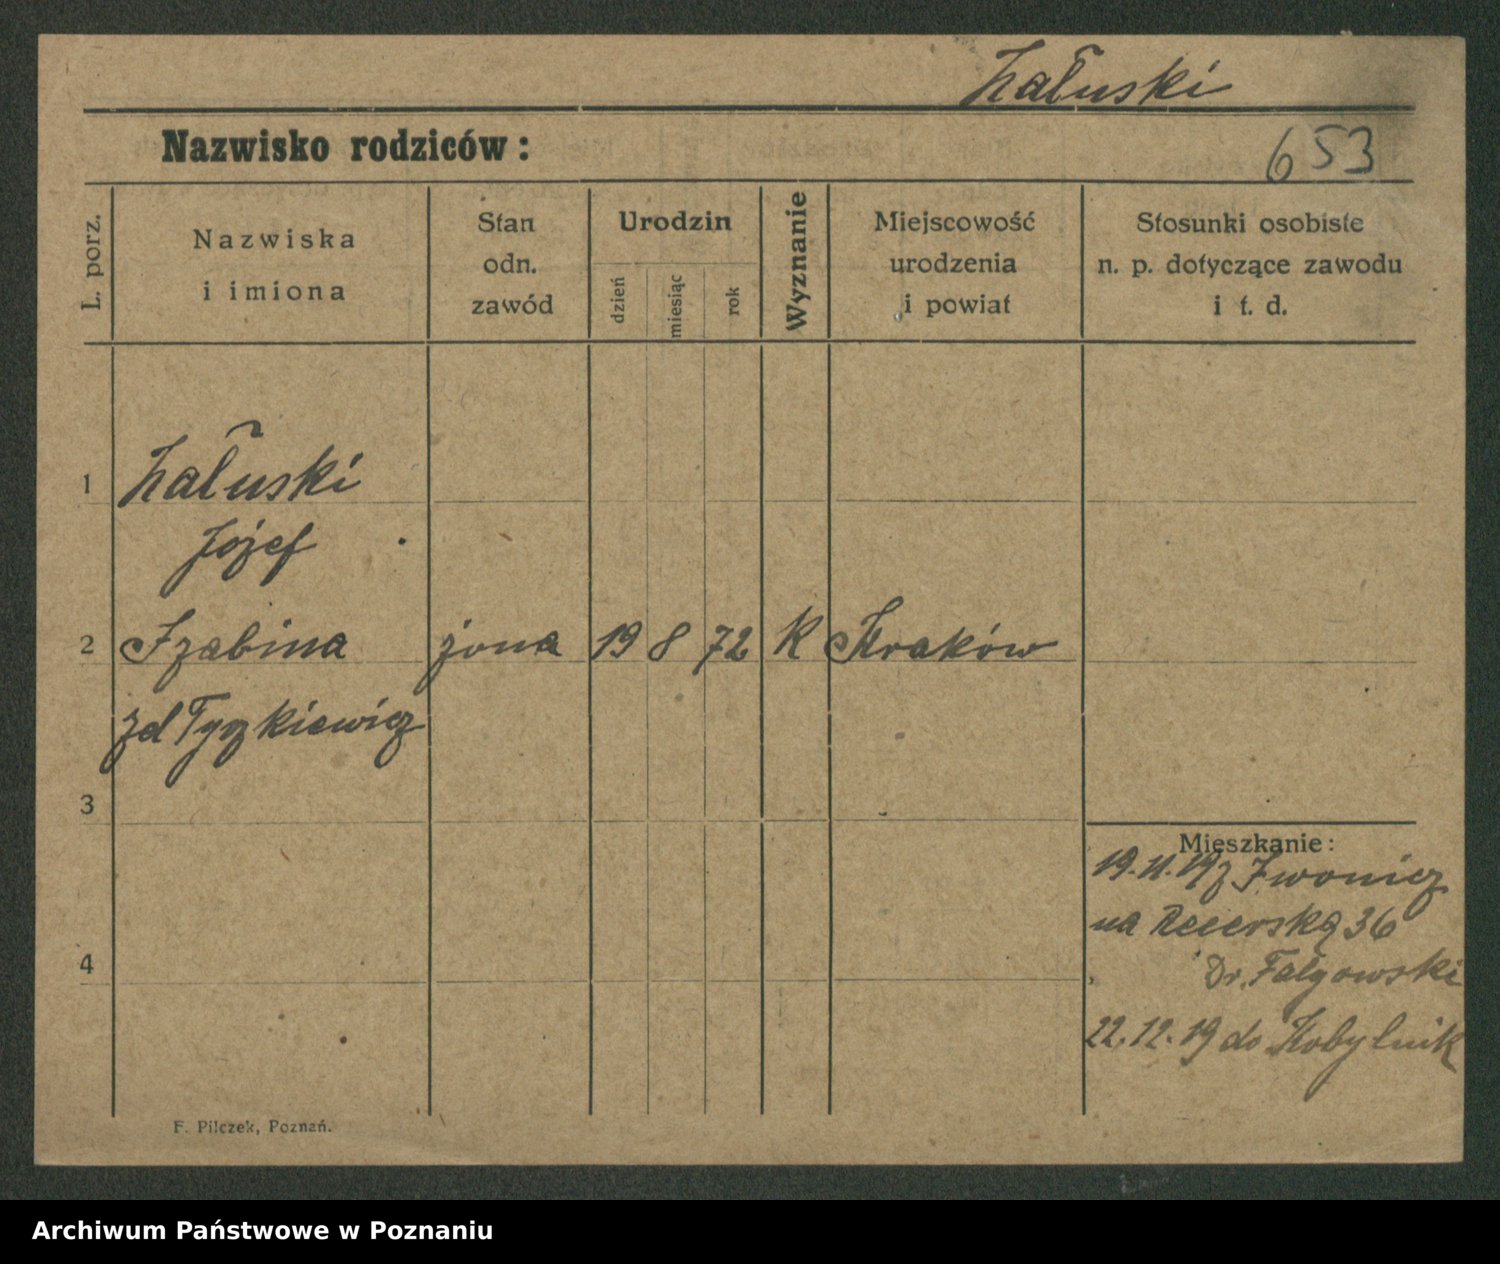 Załuski
Nazwisko rodziców:
653
L. porz.
Nazwiska
i imiona
Stan
odn.
zawód
Urodzin
dzień
miesiąc
rok
Wyznanie
Miejscowość
urodzenia
i powiat
Stosunki osobiste
n. p. dotyczące zawodu
i t. d.
1 Załuski
Józef
2 Izabina żona 19 8 72 K Kraków
zd Tyszkiewicz
3
Mieszkanie:
19.11.19 z Iwonicz
na 36
4
Dr. Fałgowski
22.12.19 do Kobylnik
F. Pilczek, Poznań.
Archiwum Państwowe w Poznaniu